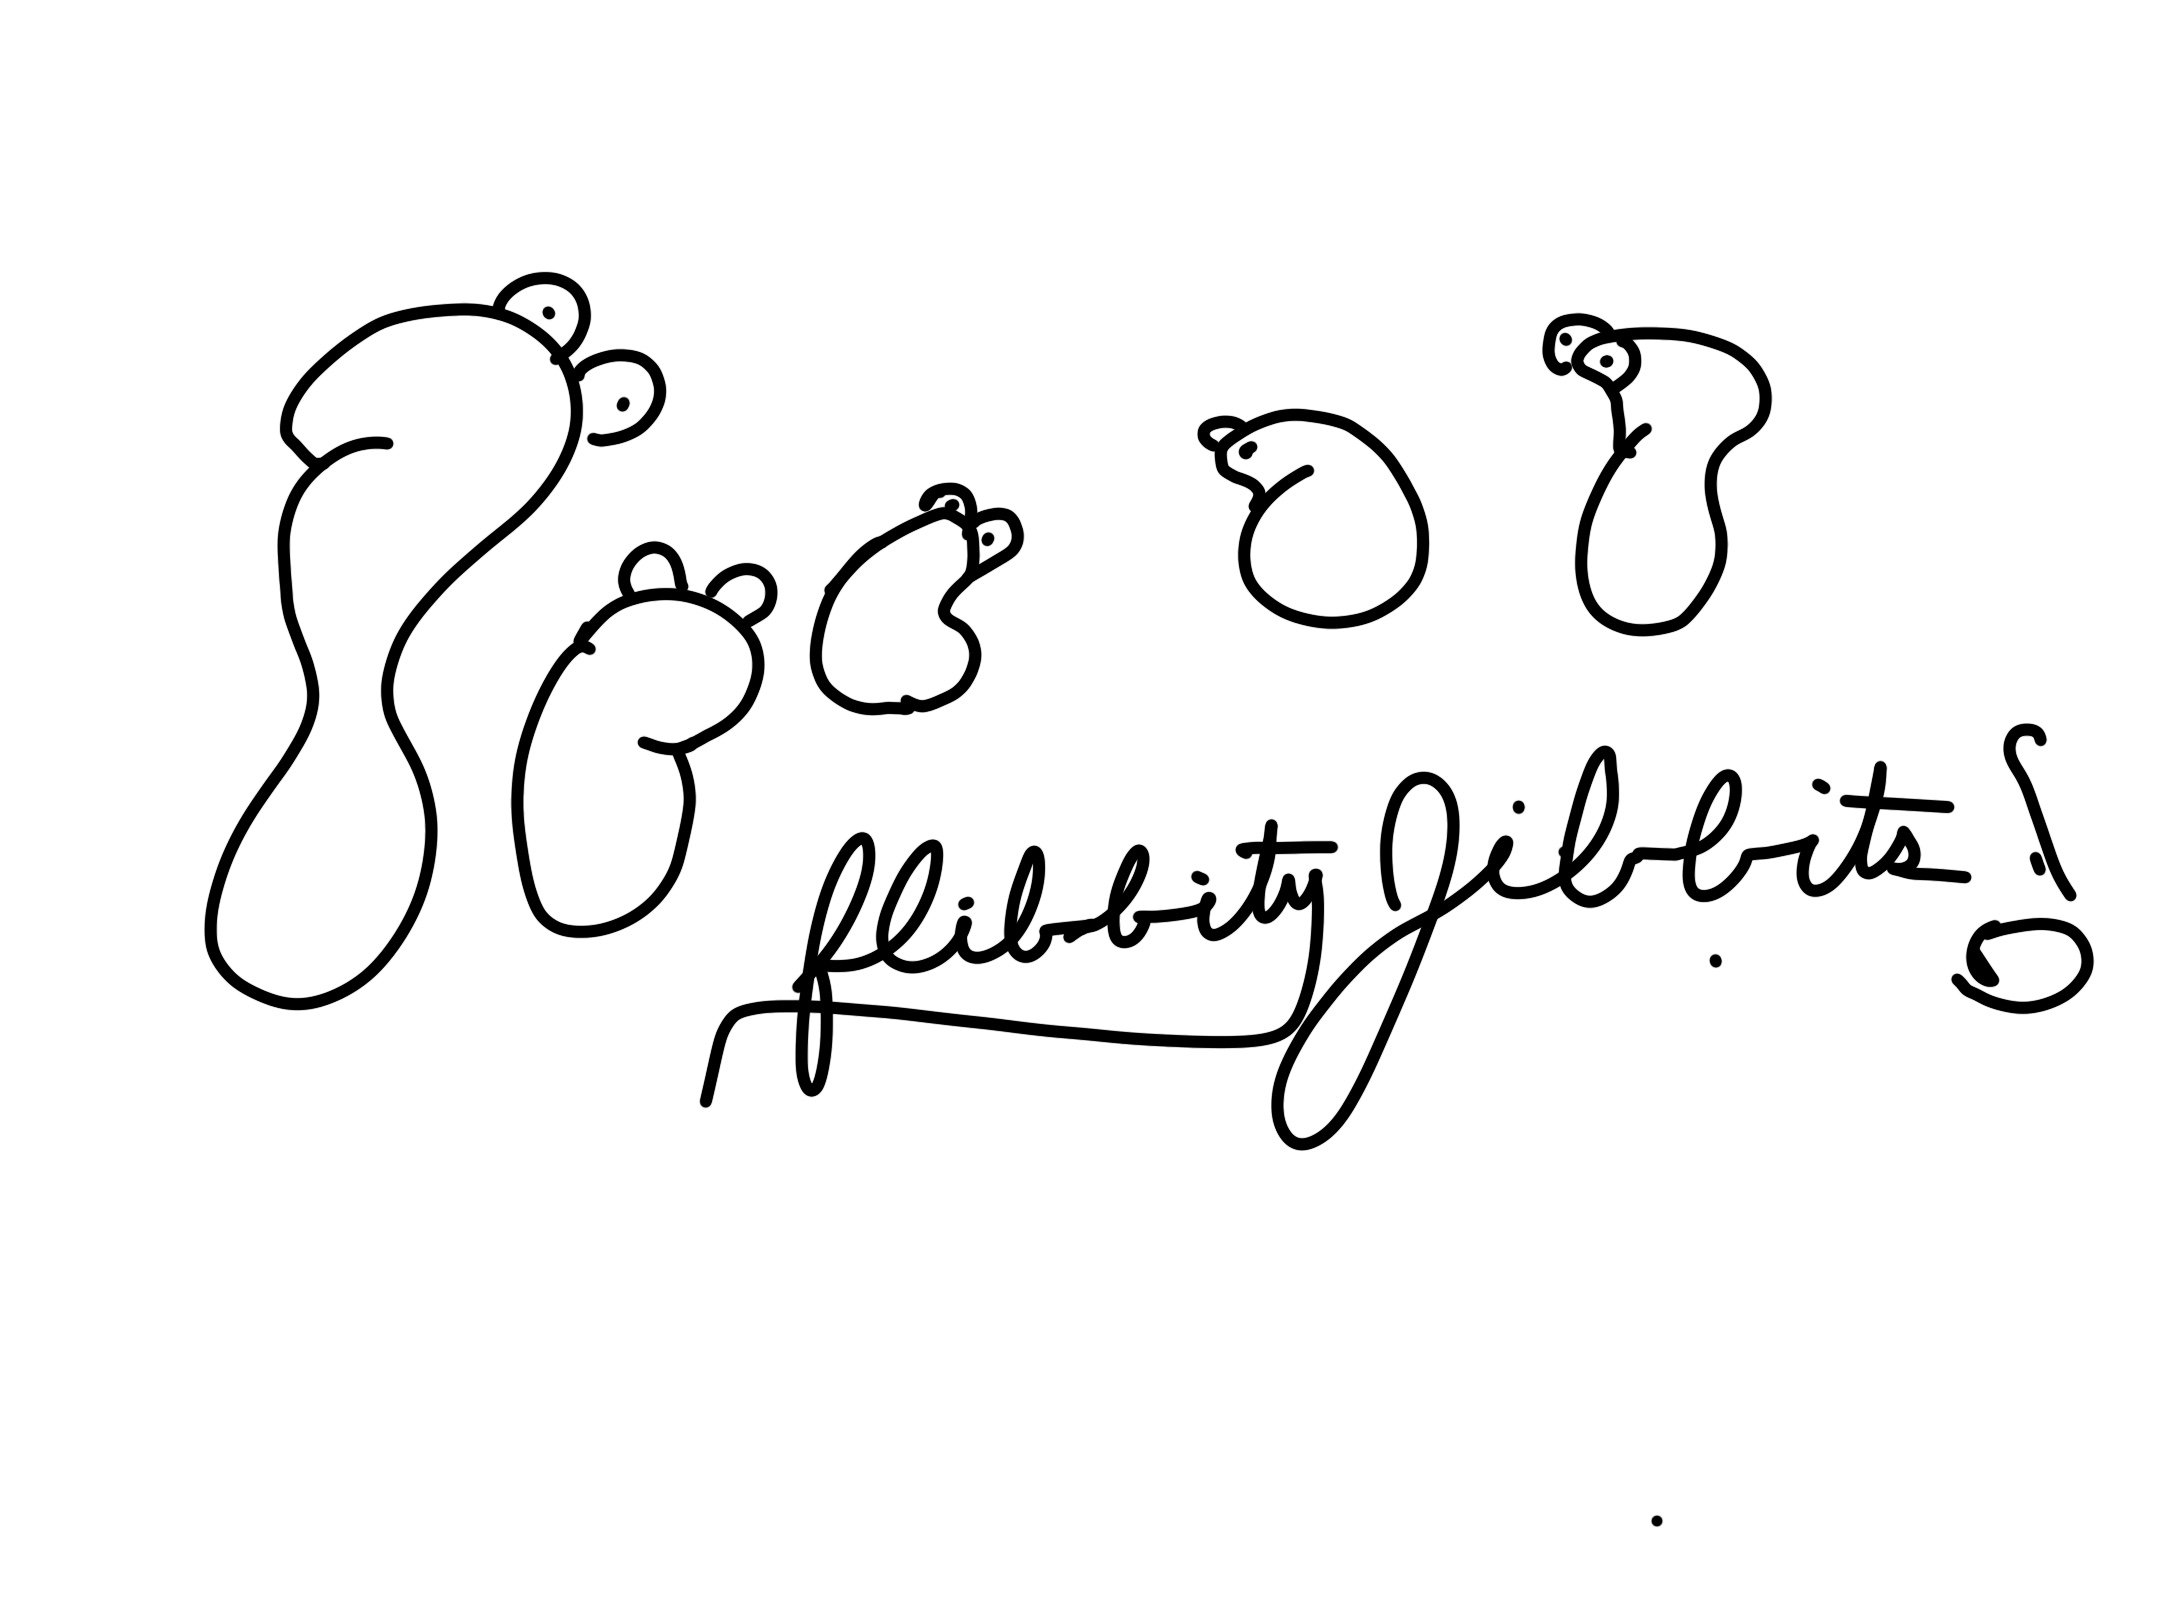 flibbity Jibbits!